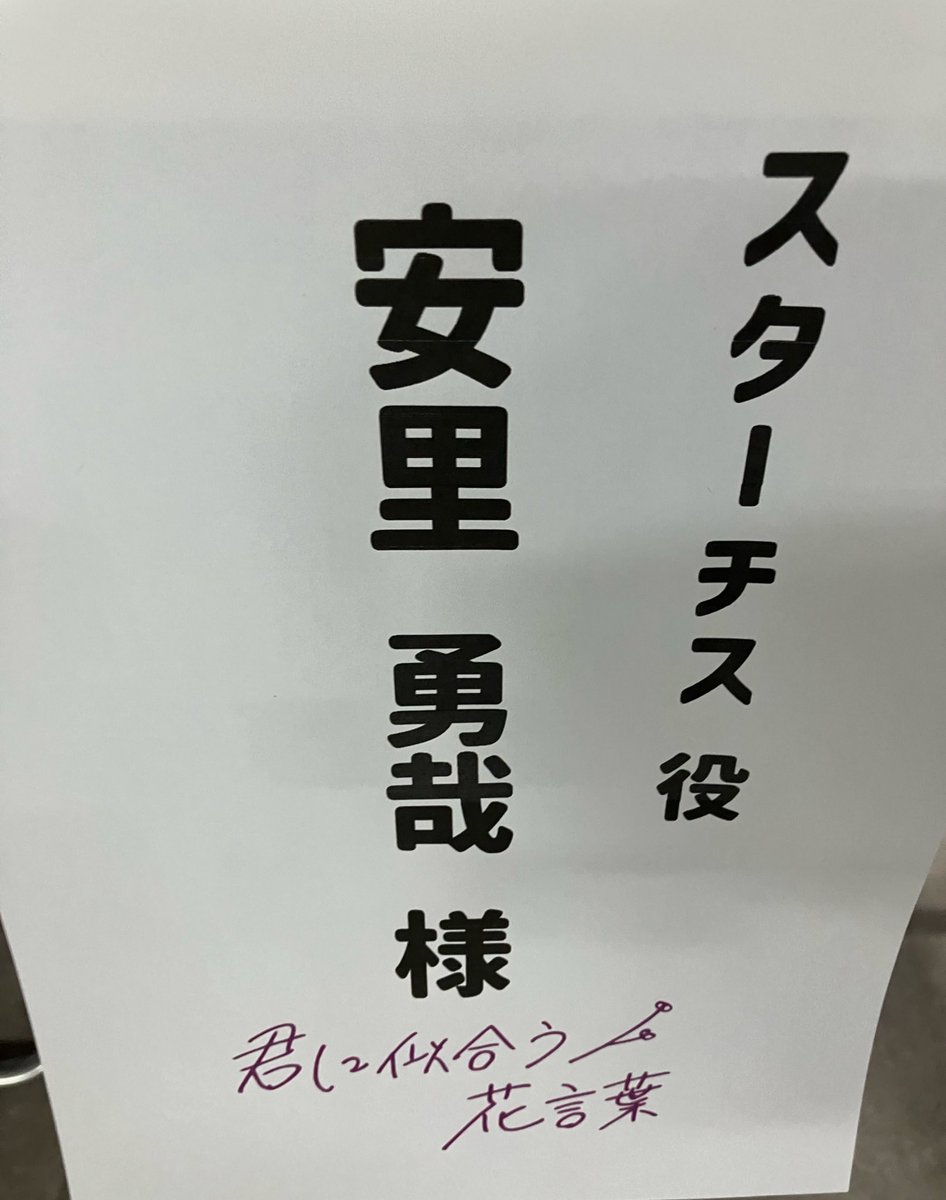 スターチス 役
安里 勇哉 様
君に似合う
花言葉